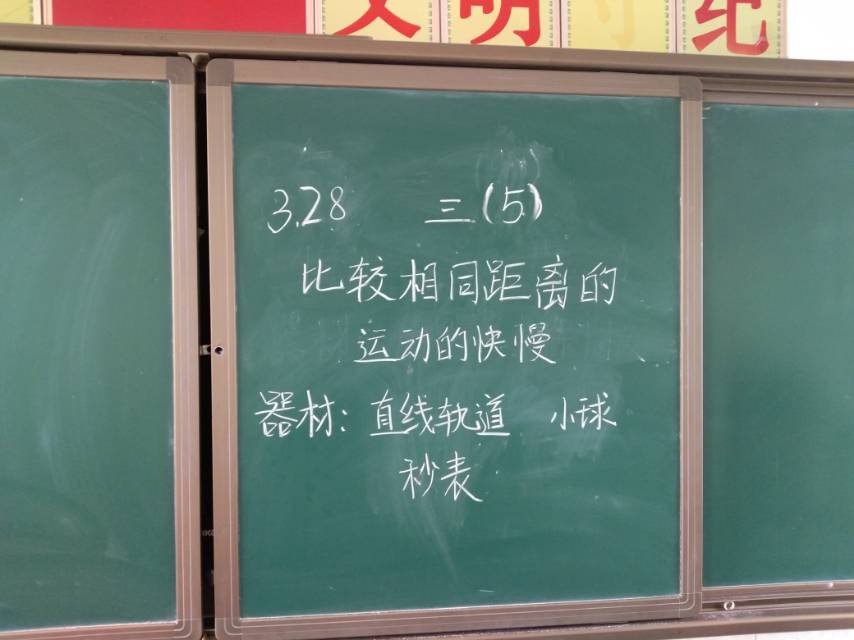 文明守纪
3.28 三(5)
比较相同距离的
运动的快慢
器材：直线轨道 小球
秒表